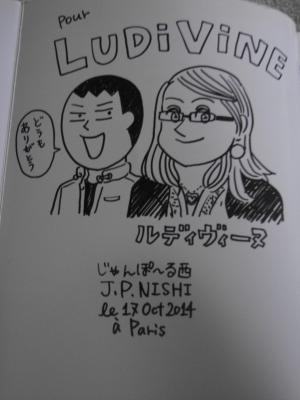 pour
LUDiViNE
どうも
ありがとう
ルディヴィーヌ
じゅんぽ〜る西
J.P.NISHI
le 17 Oct 2014
à Paris